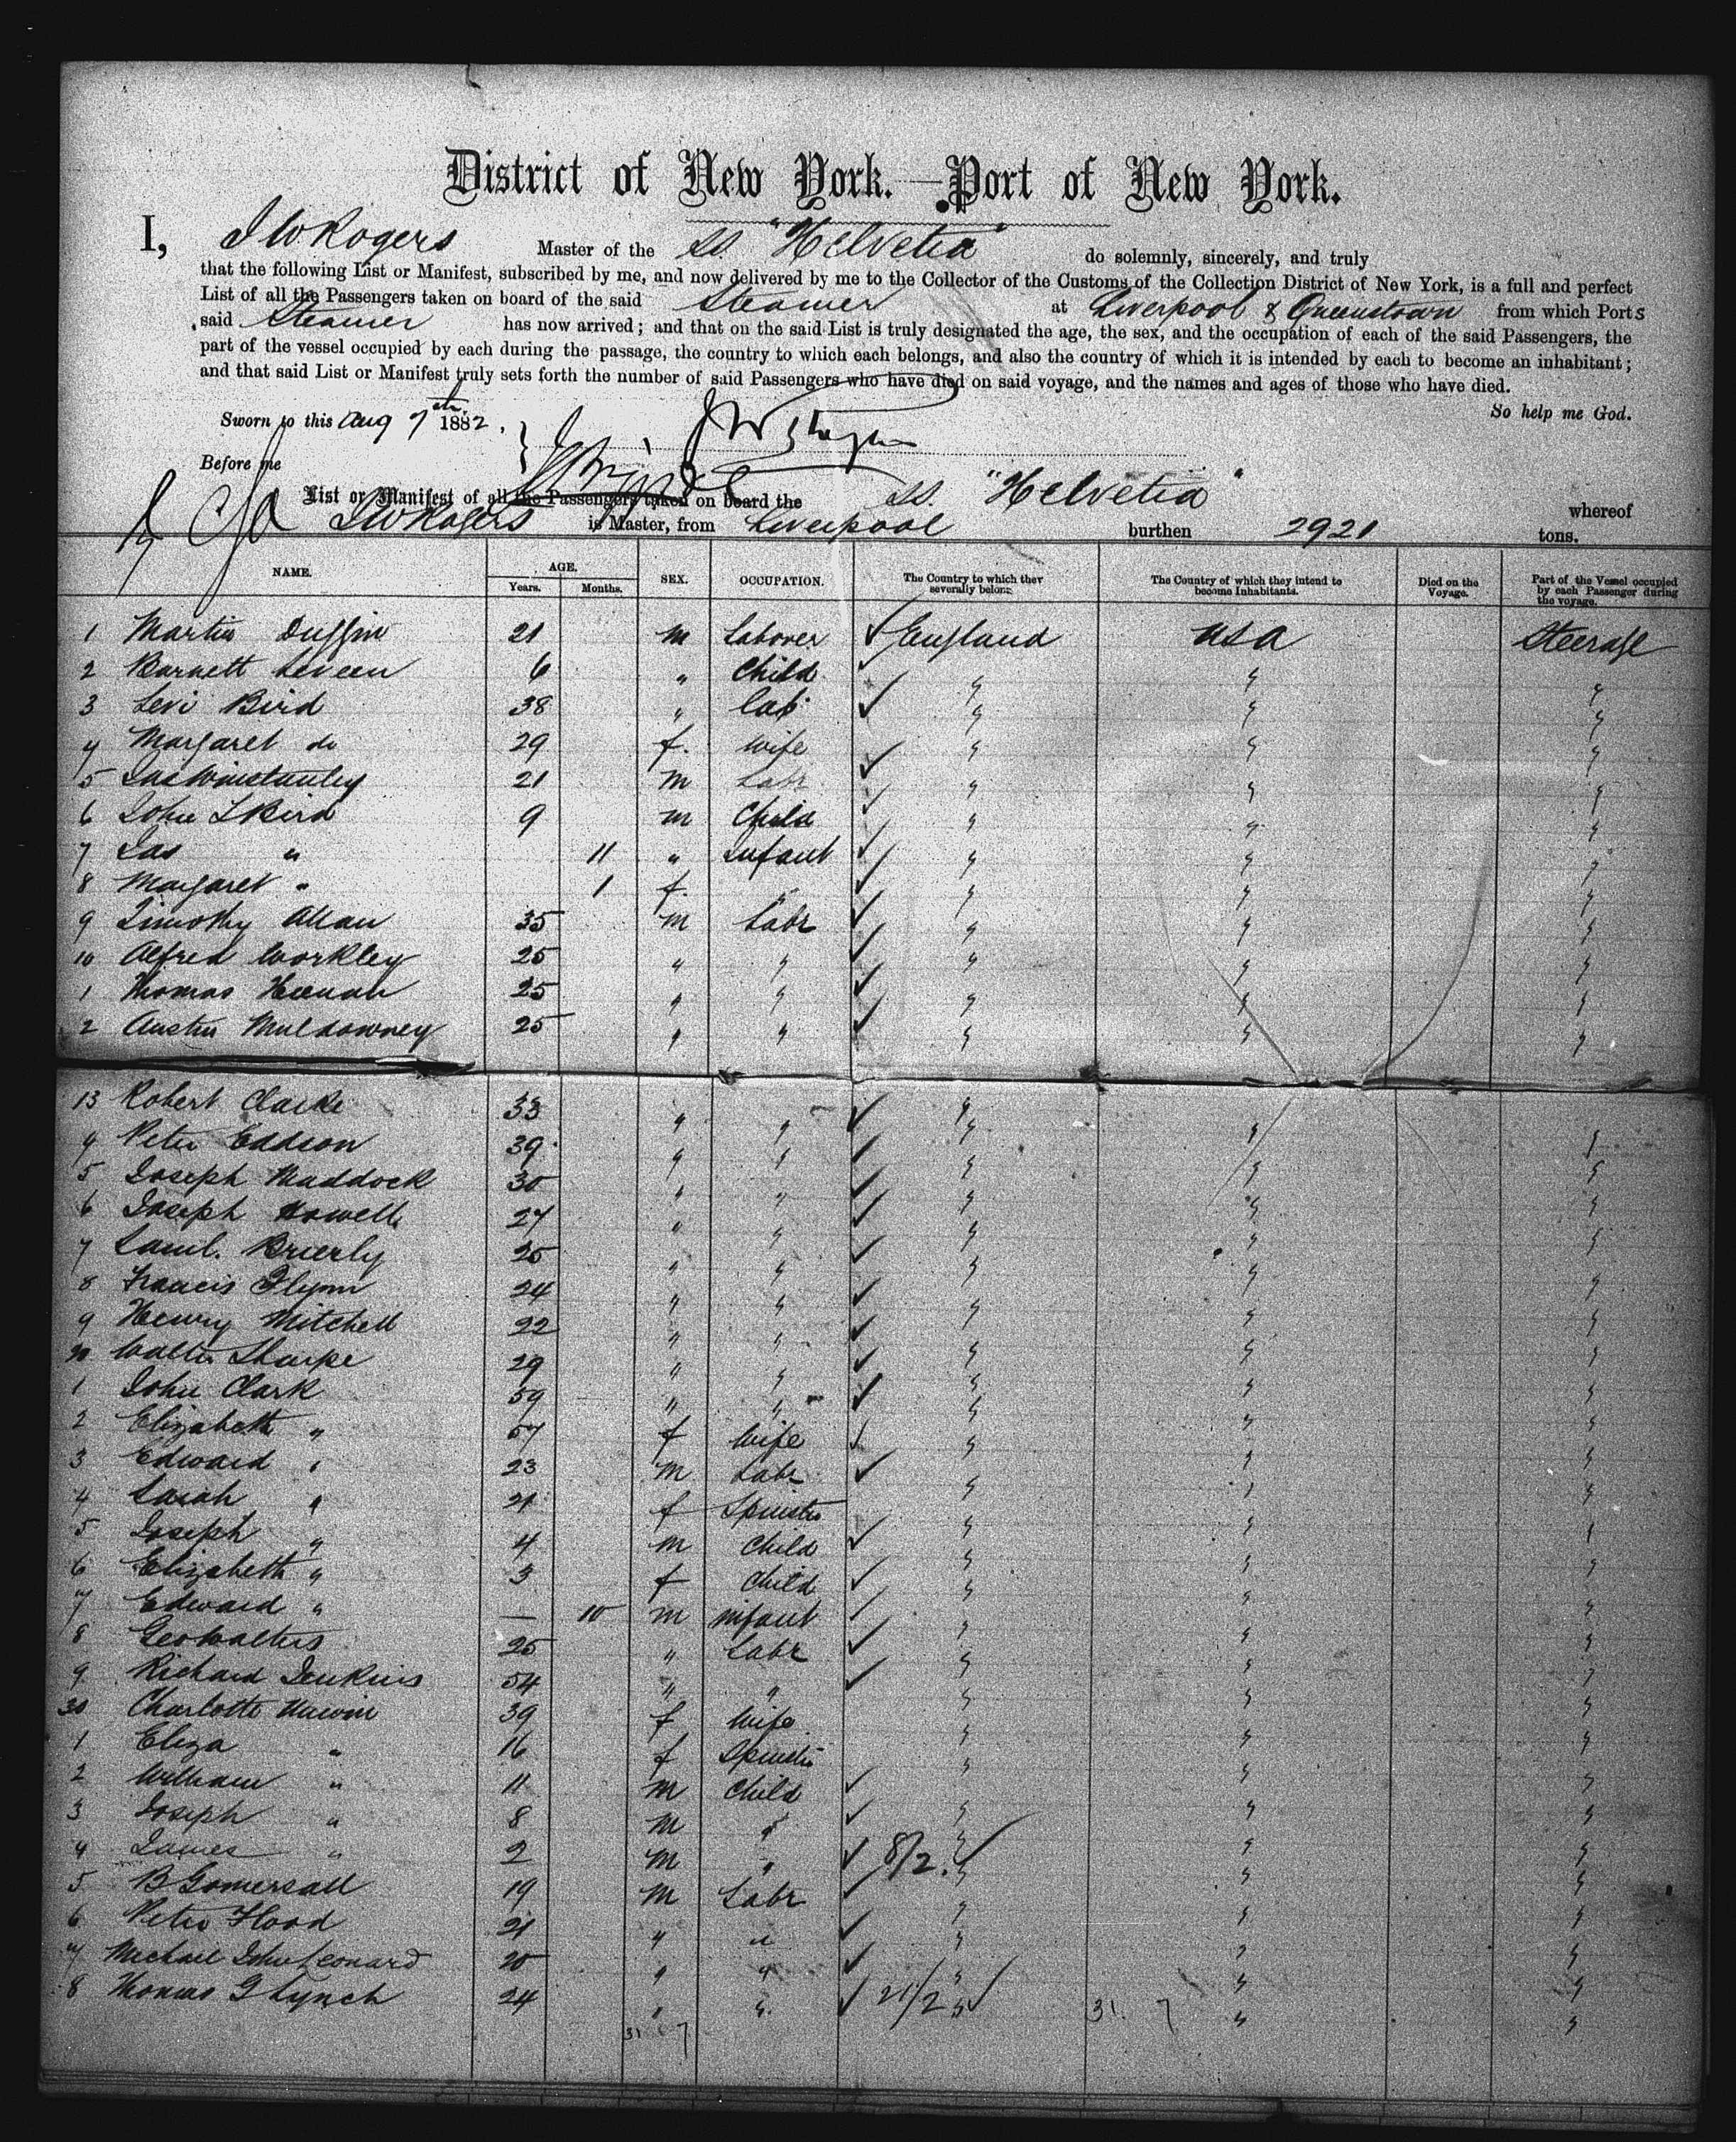 District of New York.—Port of New York.
I, J W Rogers Master of the SS. "Helvetia" do solemnly, sincerely, and truly
that the following List or Manifest, subscribed by me, and now delivered by me to the Collector of the Customs of the Collection District of New York, is a full and perfect
List of all the Passengers taken on board of the said Steamer at Liverpool & Queenstown from which Ports
said Steamer has now arrived; and that on the said List is truly designated the age, the sex, and the occupation of each of the said Passengers, the
part of the vessel occupied by each during the passage, the country to which each belongs, and also the country of which it is intended by each to become an inhabitant;
and that said List or Manifest truly sets forth the number of said Passengers who have died on said voyage, and the names and ages of those who have died.
So help me God.
Sworn to this Aug 7th 1882.
Before me
List or Manifest of all the Passengers taken on board the SS. "Helvetia" whereof
J W Rogers is Master, from Liverpool burthen 2921 tons.
NAME. AGE. Years. Months. SEX. OCCUPATION. The Country to which they severally belong. The Country of which they intend to become Inhabitants. Died on the Voyage. Part of the Vessel occupied by each Passenger during the voyage.
1 Martin Duffin 21 m Labourer England USA Steerage
2 Barnett Leveen 6 " Child " " "
3 Levi Bird 38 " Lab " " "
4 Margaret do 29 f. Wife " " "
5 Jas Winstanley 21 m Labr " " "
6 John L Bird 9 m Child " " "
7 Jas " 11 " Infant " " "
8 Margaret " 1 f. " " " "
9 Timothy Allan 35 m Labr " " "
10 Alfred Workley 25 " " " " "
1 Thomas Heenan 25 " " " " "
2 Austin Muldowney 25 " " " " "
13 Robert Clarke 33 " " " " "
4 Peter Eddson 39 " " " " "
5 Joseph Maddock 30 " " " " "
6 Joseph Howell 27 " " " " "
7 Saml. Brierly 25 " " " " "
8 Francis Flynn 24 " " " " "
9 Henry Mitchell 22 " " " " "
20 Walter Sharpe 29 " " " " "
1 John Clark 59 " " " " "
2 Elizabeth " 57 f Wife " " "
3 Edward " 23 m Labr " " "
4 Sarah " 21 f Spinster " " "
5 Joseph " 4 m Child " " "
6 Elizabeth " 3 f Child " " "
7 Edward " — 10 m infant " " "
8 Geo Walters 25 " Labr " " "
9 Richard Jenkins 54 " " " " "
30 Charlotte Unwin 39 f Wife " " "
1 Eliza " 16 f Spinster " " "
2 William " 11 m Child " " "
3 Joseph " 8 m " " " "
4 James " 2 m " 8/2. " " "
5 B Gomersall 19 m Labr " " "
6 Peter Flood 21 " " " " "
7 Michael John Leonard 20 " " " " "
8 Thomas G Lynch 24 " " 21/2 " " "
31 7 31. 7